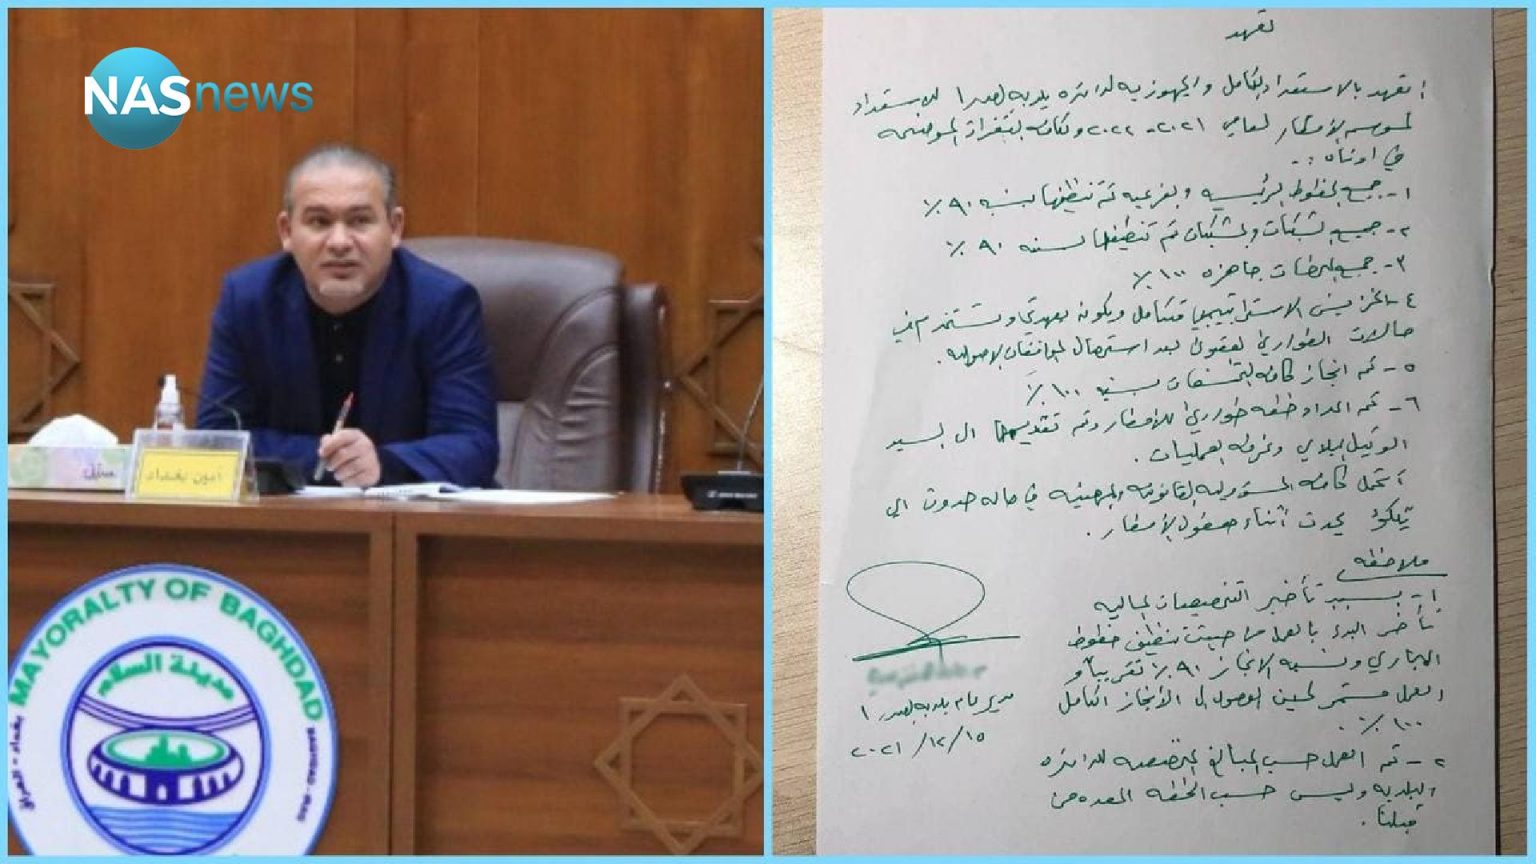 NASnews
امين بغداد
MAYORALTY OF BAGHDAD
مدينة السلام
بغداد - العراق
BAGHDAD - IRAQ
تعهد
اتعهد بالاستعداد الكامل والجهوزيه لدائره بلديه الصدر ١ للاستعداد
لموسم الامطار لعامي ٢٠٢١ - ٢٠٢٢ وكافه الفقرات الموضحه
في ادناه :-
١- جميع الخطوط الرئيسيه والفرعيه تم تنظيفها بنسبه ٩٠٪
٢- جميع الشبكات والمشبكات تم تنظيفها بنسبه ٩٠٪
٣- جميع المحطات جاهزه ١٠٠٪
٤- الخزين الاستراتيجي متكامل ويكون بعهدتي ويستخدم في
حالات الطوارئ القصوى بعد استحصال الموافقات الاصوليه.
٥- تم انجاز كافه التخسفات بنسبه ١٠٠٪
٦- تم اعداد خطه طوارئ للامطار وتم تقديمها الى السيد
الوكيل البلدي وغرفه العمليات.
أتحمل كافه المسؤوليه القانونيه والمهنيه في حاله حدوث اي
تلكؤ يحدث أثناء هطول الأمطار.
ملاحظه
١- بسبب تأخير التخصيصات الماليه
تأخر البدء بالعمل من حيث تنظيف خطوط
المجاري ونسبه الانجاز ٩٠٪ تقريباً و
العمل مستمر لحين الوصول الى الأنجاز الكامل
١٠٠٪.
٢- تم العمل حسب المبالغ المخصصه للدائره
البلديه وليس حسب الخطه المعده من
قبلنا.
مدير عام بلديه الصدر ١
٢٠٢١/١٢/١٥